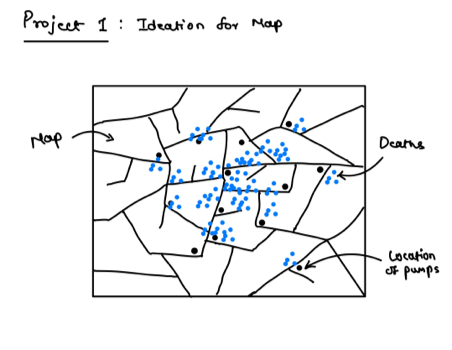 Project 1 : Ideation for Map
Map
Deaths
Location
of pumps